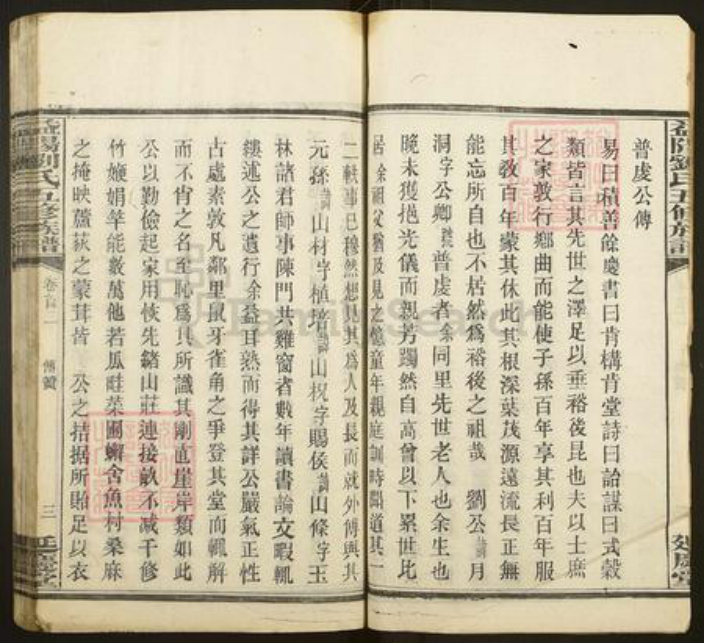 益陽劉氏五修族譜
延慶堂
普虔公傳
易曰積善餘慶書曰肯構肯堂詩曰詒謀曰式穀
類皆言其先世之澤足以垂裕後昆也夫以士庶
之家敦行鄉曲而能使子孫百年享其利百年服
其教百年蒙其休此其根深葉茂源遠流長正無
能忘所自也不居然為裕後之祖哉 劉公諱月
洞字公卿號普虔者余同里先世老人也余生也
晚未獲挹光儀而親芳躅然自高曾以下累世比
居余祖父猶及見之憶童年親庭訓時聞道其一
二軼事已穆然想見其為人及長而就外傅與其
元孫諱山材字植培諱山柷字賜侯諱山條字玉
林諸君師事陳門共雞窗者數年讀書論文暇輒
縷述公之遺行余益耳熟而得其詳公嚴氣正性
古處素敦凡鄰里鼠牙雀角之爭登其堂而輒解
而不肖之名至恥為其所識其剛直崖岸類如此
公以勤儉起家用恢先緒山莊連接畝不減千修
竹嬋娟竿能數萬他若瓜畦菜圃蠏舍魚村桑麻
之掩映蘆荻之蒙茸皆 公之拮据所貽足以衣
益陽劉氏五修族譜
卷首一
傳贊
三
延慶堂
FamilySearch